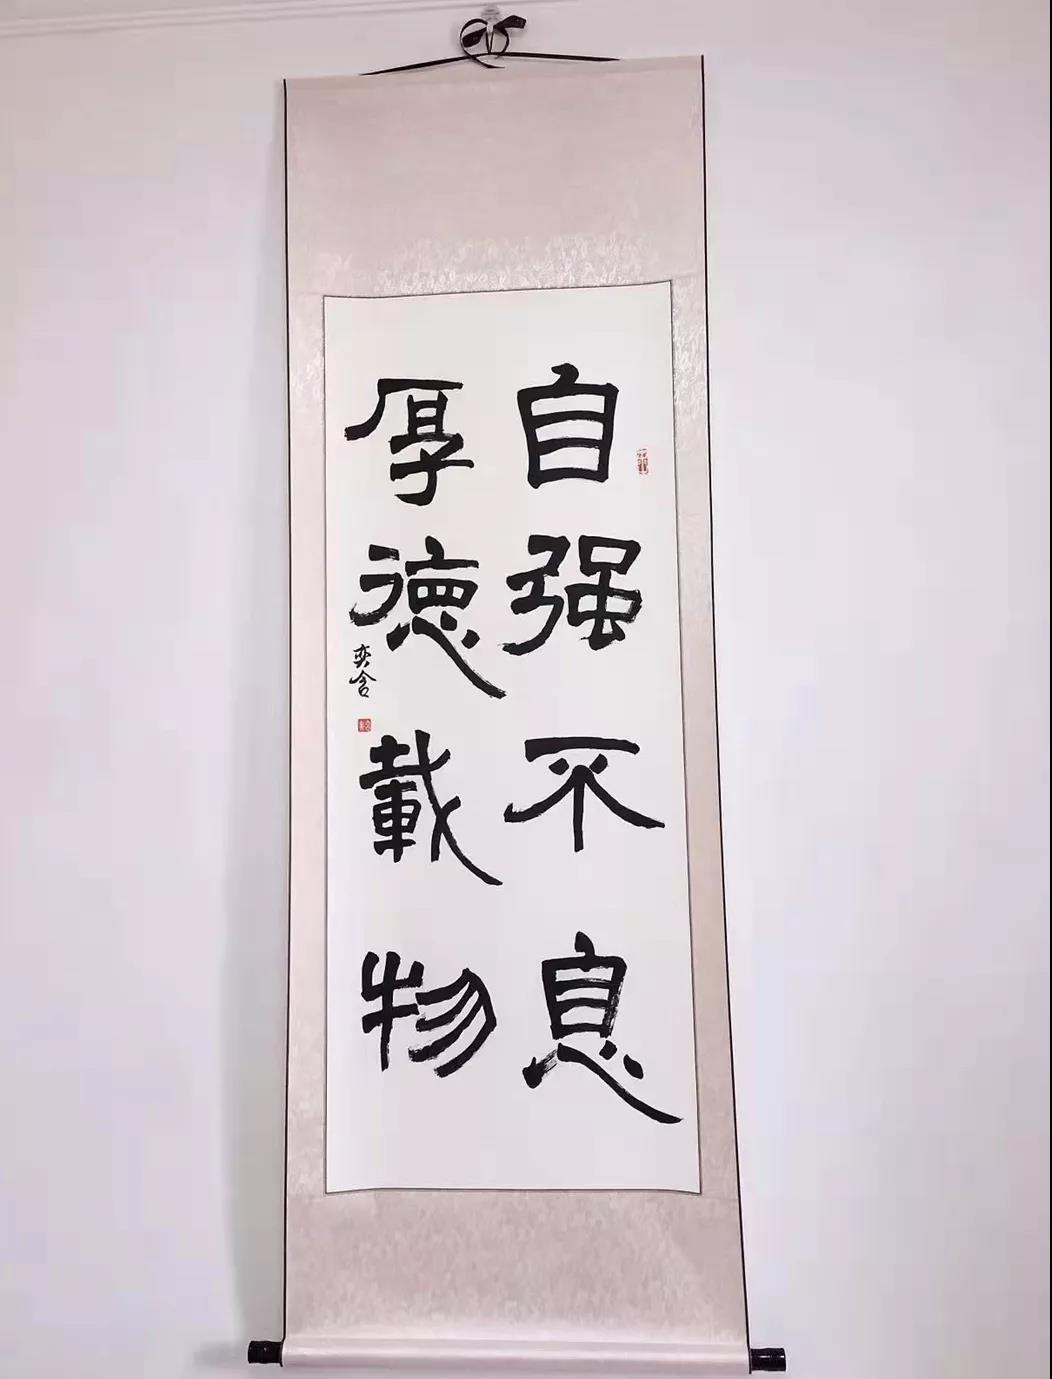 自强不息
厚德載物
奕舍